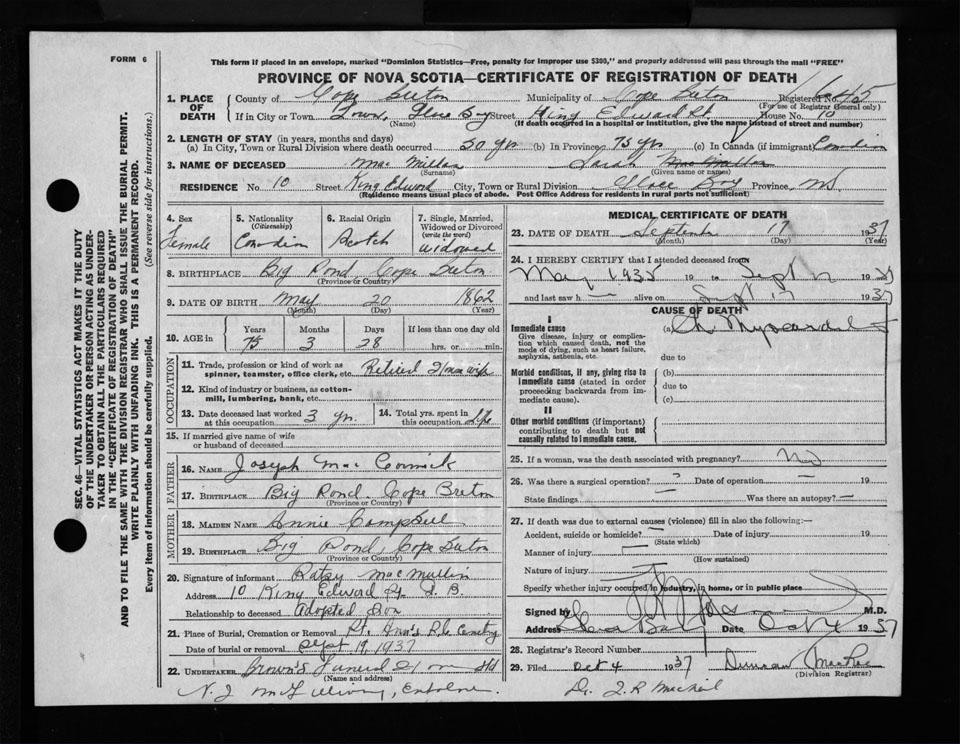 FORM 6
This form if placed in an envelope, marked "Dominion Statistics—Free, penalty for improper use $300," and properly addressed will pass through the mail "FREE"
PROVINCE OF NOVA SCOTIA—CERTIFICATE OF REGISTRATION OF DEATH
1. PLACE OF DEATH
County of Cape Breton Municipality of Cape Breton Registered No.
(For use of Registrar General only)
If in City or Town Town, Glace Bay Street King Edward St. House No. 10
(Name) (If death occurred in a hospital or institution, give the name instead of street and number)
2. LENGTH OF STAY (in years, months and days)
(a) In City, Town or Rural Division where death occurred 50 yrs (b) In Province 75 yrs (c) In Canada (if immigrant) Canadian
3. NAME OF DECEASED Mac Millan Sarah
(Surname) (Given name or names)
RESIDENCE No. 10 Street King Edward City, Town or Rural Division Glace Bay Province NS.
(Residence means usual place of abode. Post Office Address for residents in rural parts not sufficient)
4. Sex
Female
5. Nationality
(Citizenship)
Canadian
6. Racial Origin
Scotch
7. Single, Married, Widowed or Divorced
(write the word)
Widowed
8. BIRTHPLACE Big Pond, Cape Breton
(Province or Country)
9. DATE OF BIRTH May 20 1862
(Month) (Day) (Year)
10. AGE in
Years Months Days If less than one day old
75 3 28 hrs. or min.
OCCUPATION
11. Trade, profession or kind of work as
spinner, teamster, office clerk, etc. Retired Housewife
12. Kind of industry or business, as cotton-
mill, lumbering, bank, etc.
13. Date deceased last worked at this occupation 3 yrs.
14. Total yrs. spent in this occupation Life
15. If married give name of wife
or husband of deceased
FATHER
16. NAME Joseph Mac Cormick
17. BIRTHPLACE Big Pond. Cape Breton
(Province or Country)
MOTHER
18. MAIDEN NAME Annie Campbell
19. BIRTHPLACE Big Pond, Cape Breton
(Province or Country)
20. Signature of informant
Address 10 King Edward St. G. B.
Relationship to deceased Adopted Son
21. Place of Burial, Cremation or Removal St. Ann's R.C. Cemetery
Date of burial or removal Sept 19, 1937
22. UNDERTAKER Brown's Funeral Home Ltd
(Name and address)
MEDICAL CERTIFICATE OF DEATH
23. DATE OF DEATH September 17 1937
(Month) (Day) (Year)
24. I HEREBY CERTIFY that I attended deceased from
May 1935 19 to Sept 17 1937
and last saw h— alive on Sept 17 1937
CAUSE OF DEATH
I
Immediate cause
Give disease, injury or complication which caused death, not the mode of dying, such as heart failure, asphyxia, asthenia, etc.
(a) Ch Myocardites
due to
Morbid conditions, if any, giving rise to immediate cause (stated in order proceeding backwards from immediate cause).
(b)
due to
(c)
II
Other morbid conditions (if important) contributing to death but not causally related to immediate cause.
25. If a woman, was the death associated with pregnancy? No
26. Was there a surgical operation? Date of operation — 19
State findings Was there an autopsy? —
27. If death was due to external causes (violence) fill in also the following:—
Accident, suicide or homicide? Date of injury 19
(State which)
Manner of injury
(How sustained)
Nature of injury
Specify whether injury occurred in industry, in home, or in public place
Signed by M.D.
Address Glace Bay Date Oct 4 1937
28. Registrar's Record Number
29. Filed Oct 4 1937 Duncan MacRae
(Division Registrar)
SEC. 46—VITAL STATISTICS ACT MAKES IT THE DUTY
OF THE UNDERTAKER OR PERSON ACTING AS UNDER-
TAKER TO OBTAIN ALL THE PARTICULARS REQUIRED
IN THE "CERTIFICATE OF REGISTRATION OF DEATH"
AND TO FILE THE SAME WITH THE DIVISION REGISTRAR WHO SHALL ISSUE THE BURIAL PERMIT.
WRITE PLAINLY WITH UNFADING INK. THIS IS A PERMANENT RECORD.
Every item of information should be carefully supplied. (See reverse side for instructions.)